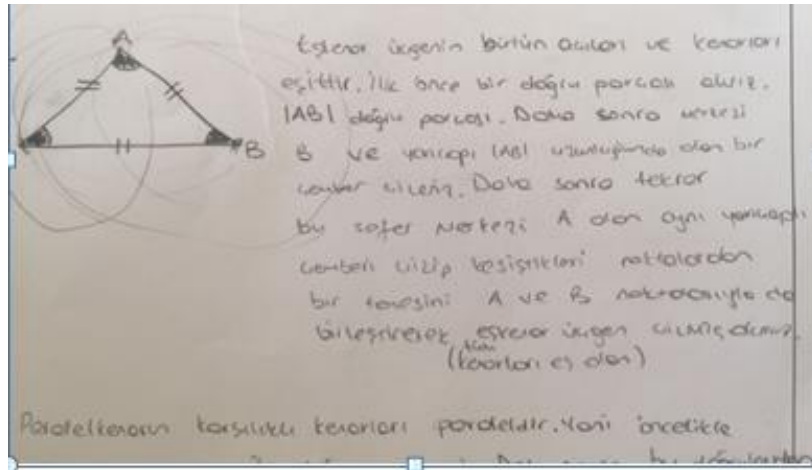 A
B
Eşkenar üçgenin bütün açıları ve kenarları
eşittir. İlk önce bir doğru parçası alırız.
|AB| doğru parçası. Daha sonra merkezi
B ve yarıçapı |AB| uzunluğunda olan bir
çember çizeriz. Daha sonra tekrar
bu sefer merkezi A olan aynı yarıçaplı
çemberi çizip kesiştikleri noktalardan
bir tanesini A ve B noktalarıyla da
birleştirerek eşkenar üçgen çizmiş oluruz.
(kenarları eş olan)
Paralelkenarın karşılıklı kenarları paraleldir. Yani öncelikle